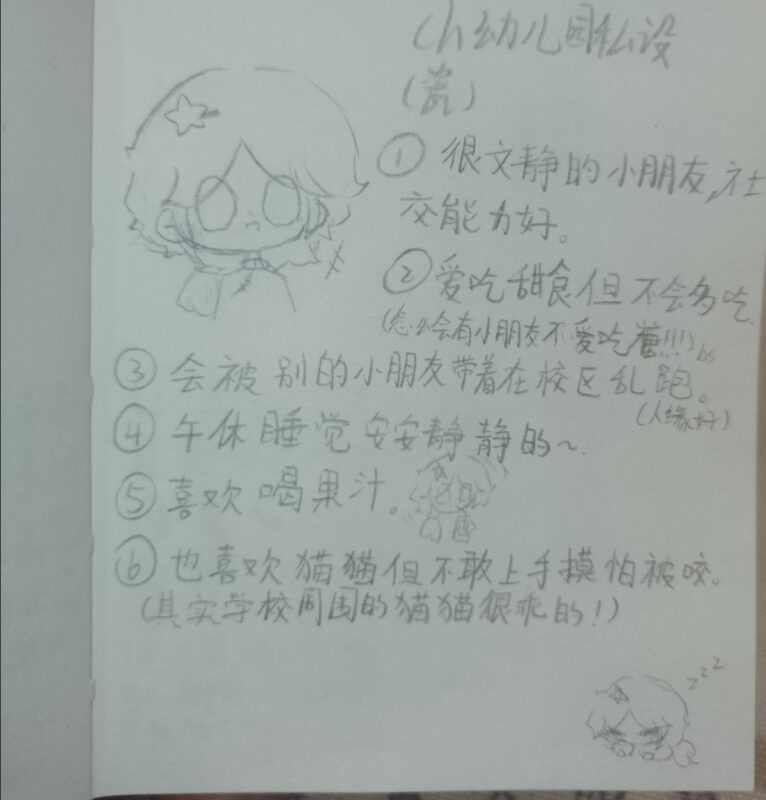 ch幼儿园私设
(瓷)
① 很文静的小朋友,社
交能力好。
② 爱吃甜食但不会多吃.
(怎么会有小朋友不爱吃糖!!!) bs
③ 会被别的小朋友带着在校区乱跑。
(人缘好)
④ 午休睡觉安安静静的~
⑤ 喜欢喝果汁。
⑥ 也喜欢猫猫但不敢上手摸怕被咬。
(其实学校周围的猫猫很乖的!)
zzz